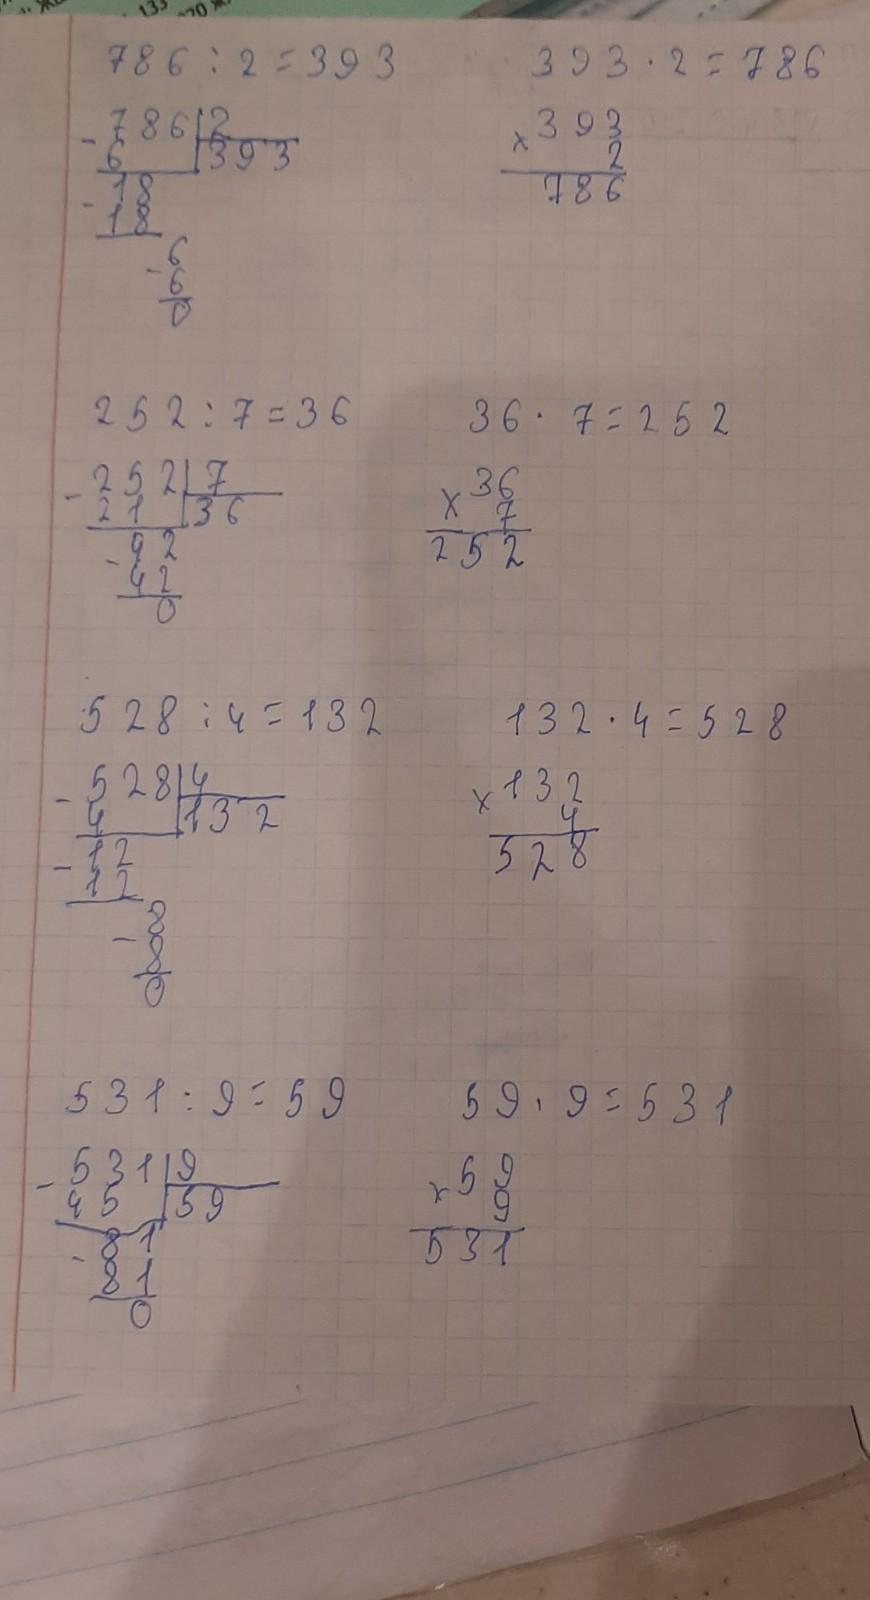 133
786 : 2 = 393 393 · 2 = 786
- 786 2 × 393
6 393 2
- 18 786
18
- 6
6
0
252 : 7 = 36 36 · 7 = 252
- 252 7 × 36
21 36 7
- 42 252
42
0
528 : 4 = 132 132 · 4 = 528
- 528 4 × 132
4 132 4
- 12 528
12
- 8
8
0
531 : 9 = 59 59 · 9 = 531
- 531 9 × 59
45 59 9
- 81 531
81
0